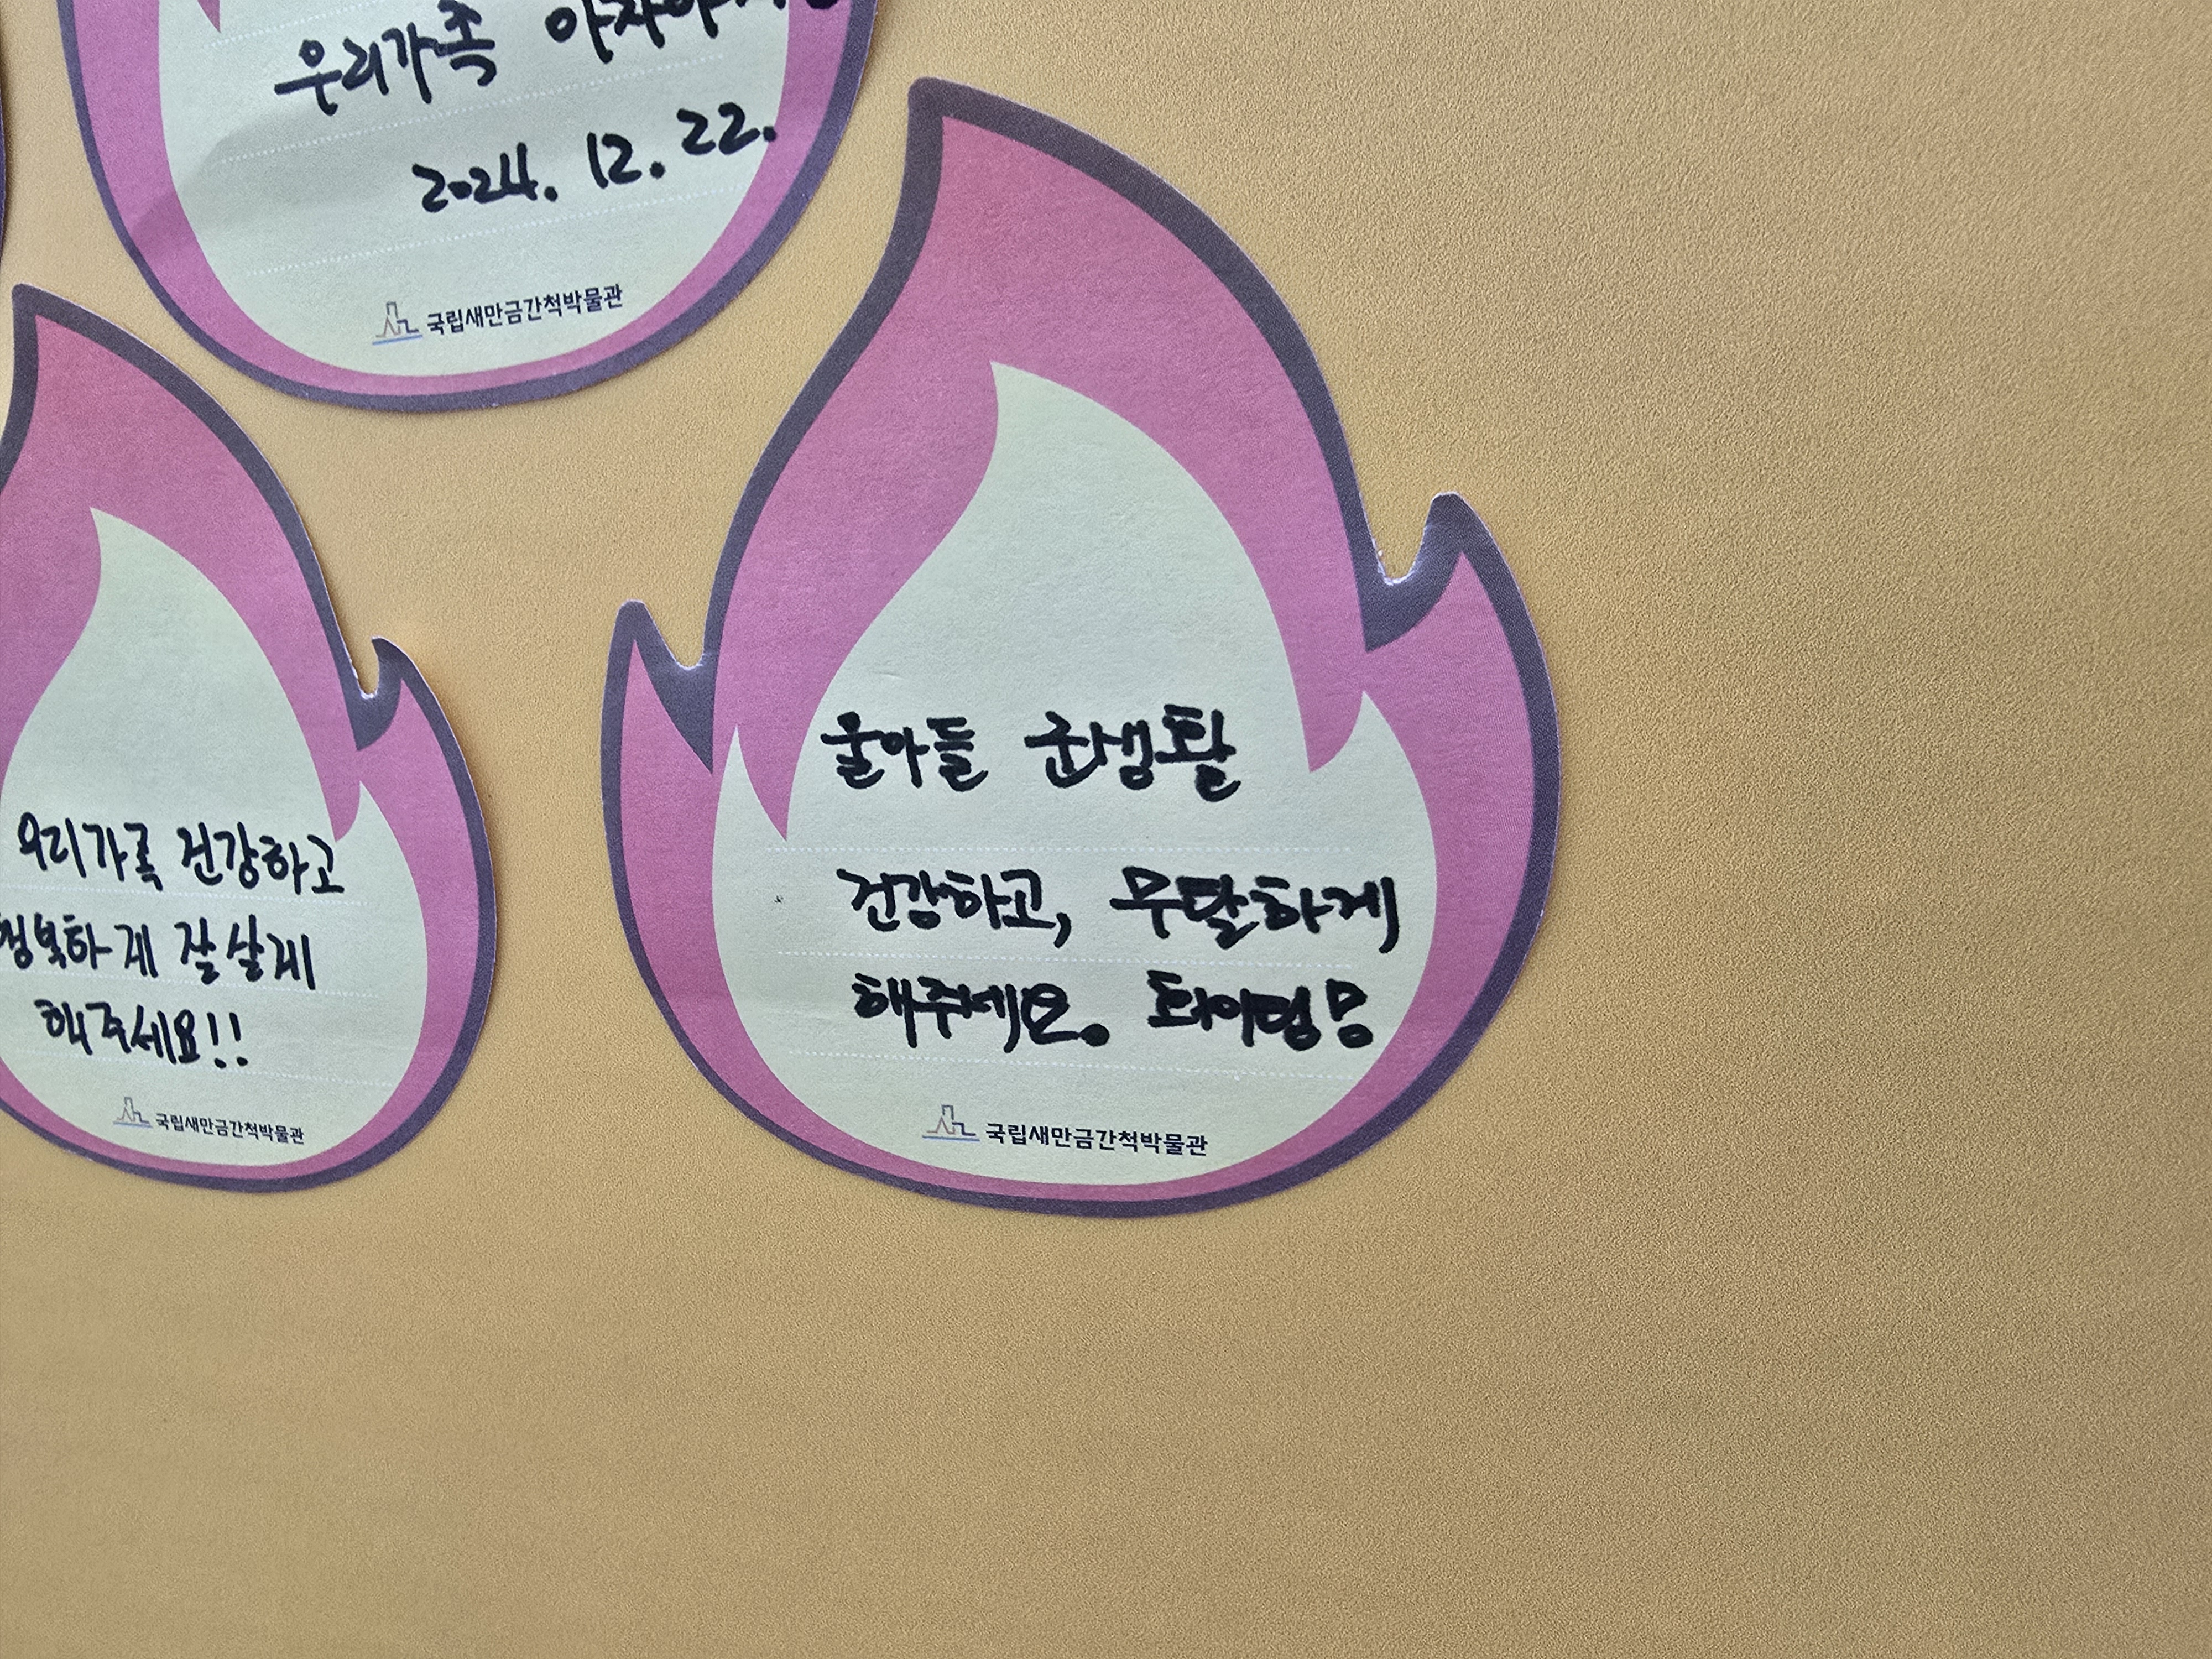 우리가족
2024. 12. 22.
국립새만금간척박물관
우리가족 건강하고
행복하게 잘살게
해주세요!!
국립새만금간척박물관
울아들 군생활
건강하고, 무탈하게
해주세요. 화이팅!
국립새만금간척박물관